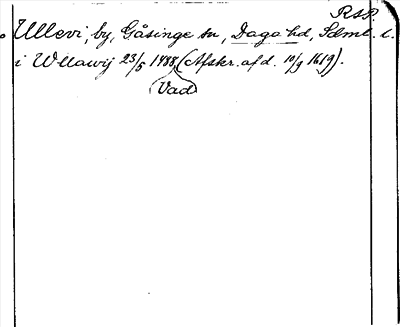 RAP.
Ullevi, by, Gåsinge sn, Daga hd, Sdml. l.
i Wllawij 23/5 1488 (Afskr. af d. 10/9 1619).
(Vad)